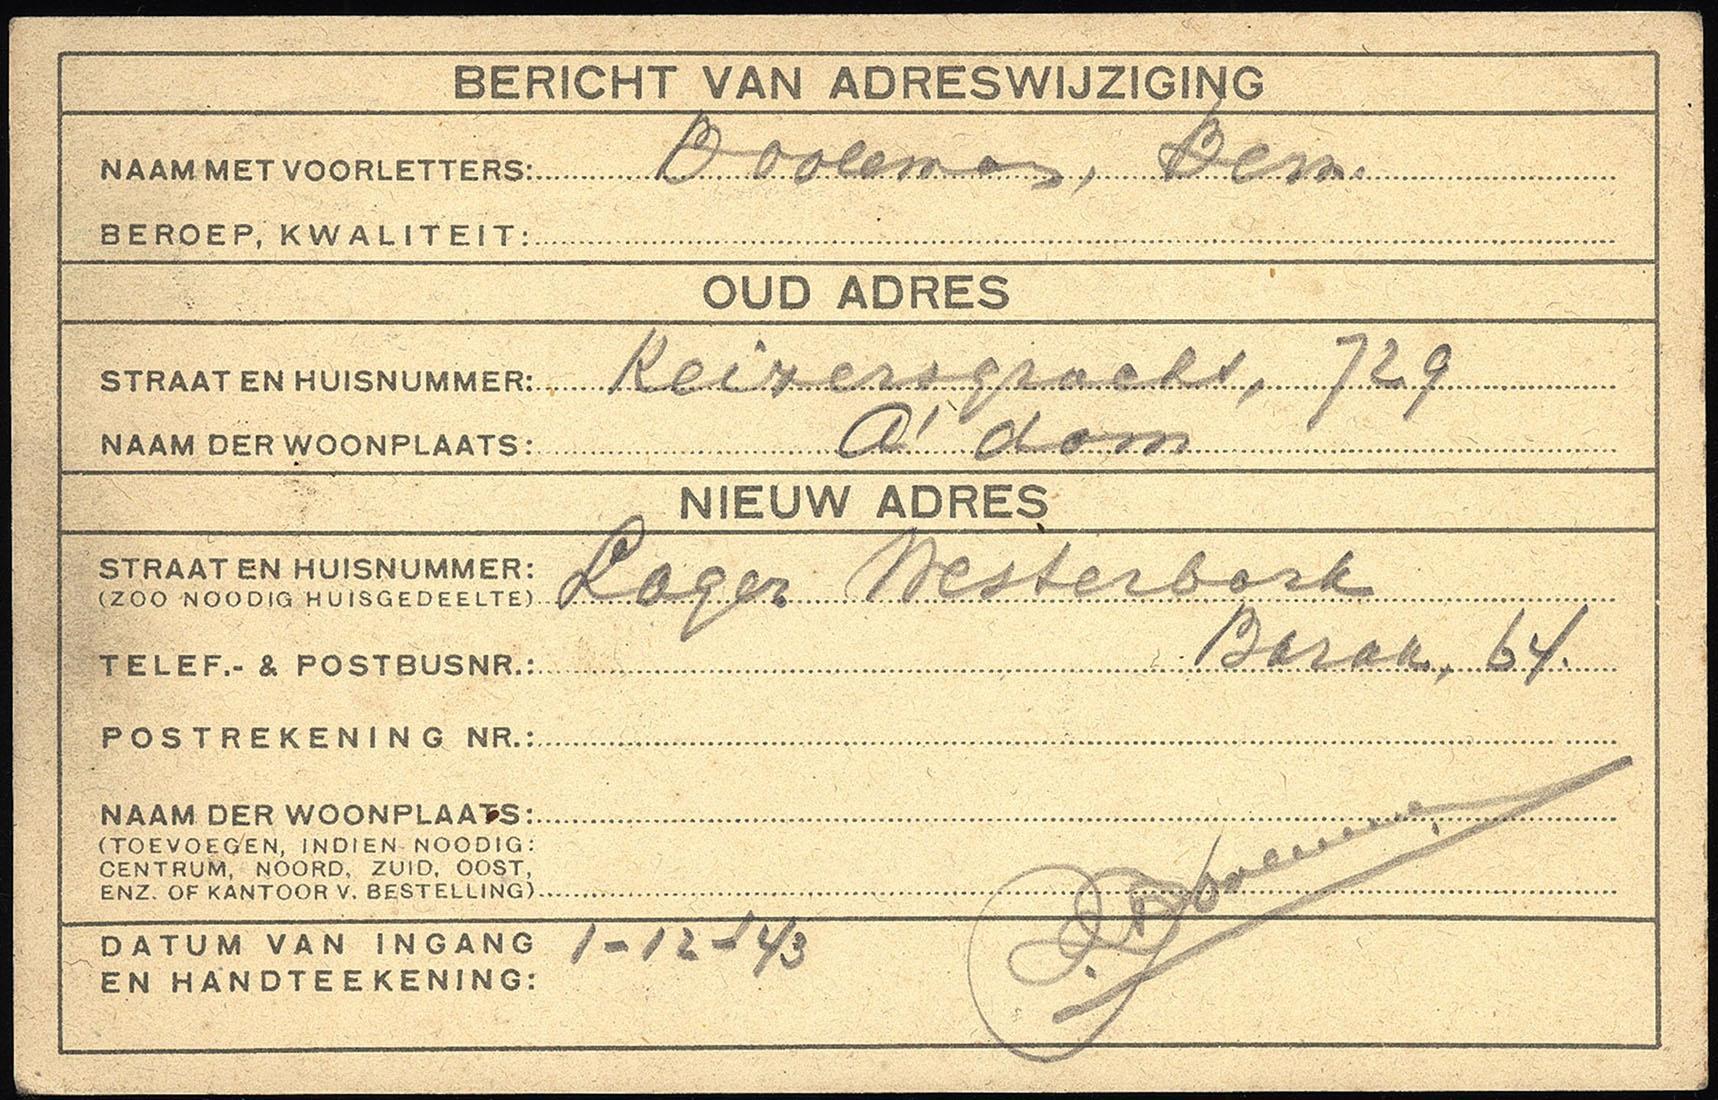 BERICHT VAN ADRESWIJZIGING
NAAM MET VOORLETTERS: Booleman, Bern.
BEROEP, KWALITEIT:
OUD ADRES
STRAAT EN HUISNUMMER: Keizersgracht, 729
NAAM DER WOONPLAATS: A'dam
NIEUW ADRES
STRAAT EN HUISNUMMER: Lager Westerbork
(ZOO NOODIG HUISGEDEELTE)
TELEF.- & POSTBUSNR.: Barak, 64.
POSTREKENING NR.:
NAAM DER WOONPLAATS:
(TOEVOEGEN, INDIEN NOODIG:
CENTRUM, NOORD, ZUID, OOST,
ENZ. OF KANTOOR V. BESTELLING)
DATUM VAN INGANG 1-12-43
EN HANDTEEKENING: